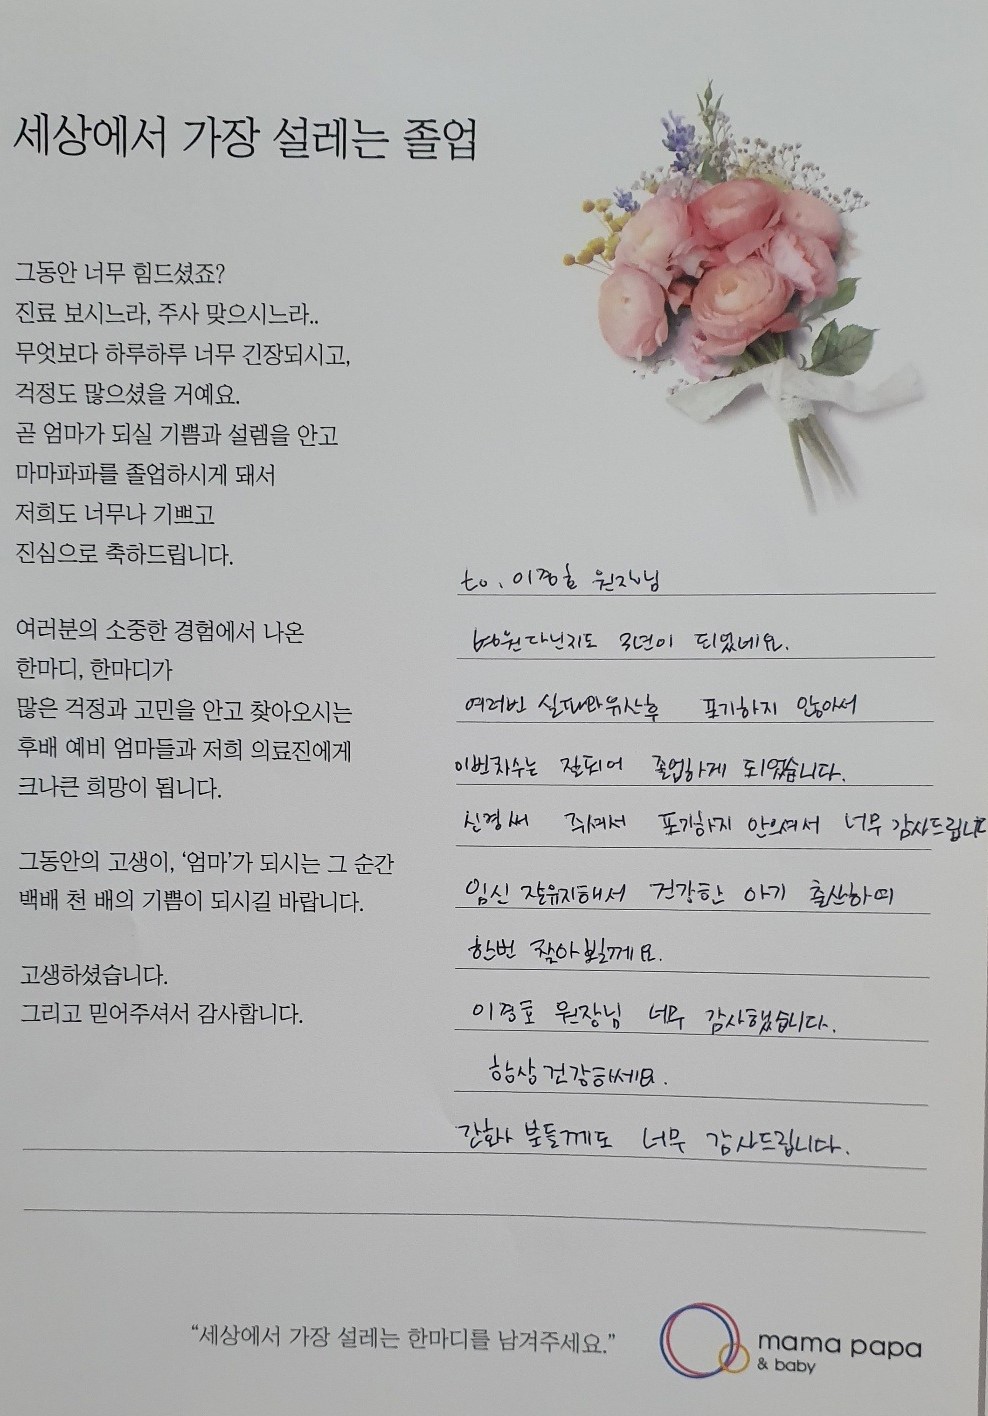 세상에서 가장 설레는 졸업
그동안 너무 힘드셨죠?
진료 보시느라, 주사 맞으시느라..
무엇보다 하루하루 너무 긴장되시고,
걱정도 많으셨을 거예요.
곧 엄마가 되실 기쁨과 설렘을 안고
마마파파를 졸업하시게 돼서
저희도 너무나 기쁘고
진심으로 축하드립니다.
여러분의 소중한 경험에서 나온
한마디, 한마디가
많은 걱정과 고민을 안고 찾아오시는
후배 예비 엄마들과 저희 의료진에게
크나큰 희망이 됩니다.
그동안의 고생이, ‘엄마’가 되시는 그 순간
백배 천 배의 기쁨이 되시길 바랍니다.
고생하셨습니다.
그리고 믿어주셔서 감사합니다.
to. 이경호 원장님
병원다닌지도 3년이 되었네요.
여러번 실패와유산후 포기하지 않아서
이번차수는 잘되어 졸업하게 되었습니다.
신경써 주셔서 포기하지 안으셔서 너무 감사드립니다
임신 잘유지해서 건강한 아기 출산하띠
한번 찾아뵐께요.
이경호 원장님 너무 감사했습니다.
항상 건강하세요.
간화사 분들께도 너무 감사드립니다.
“세상에서 가장 설레는 한마디를 남겨주세요.”
mama papa
& baby